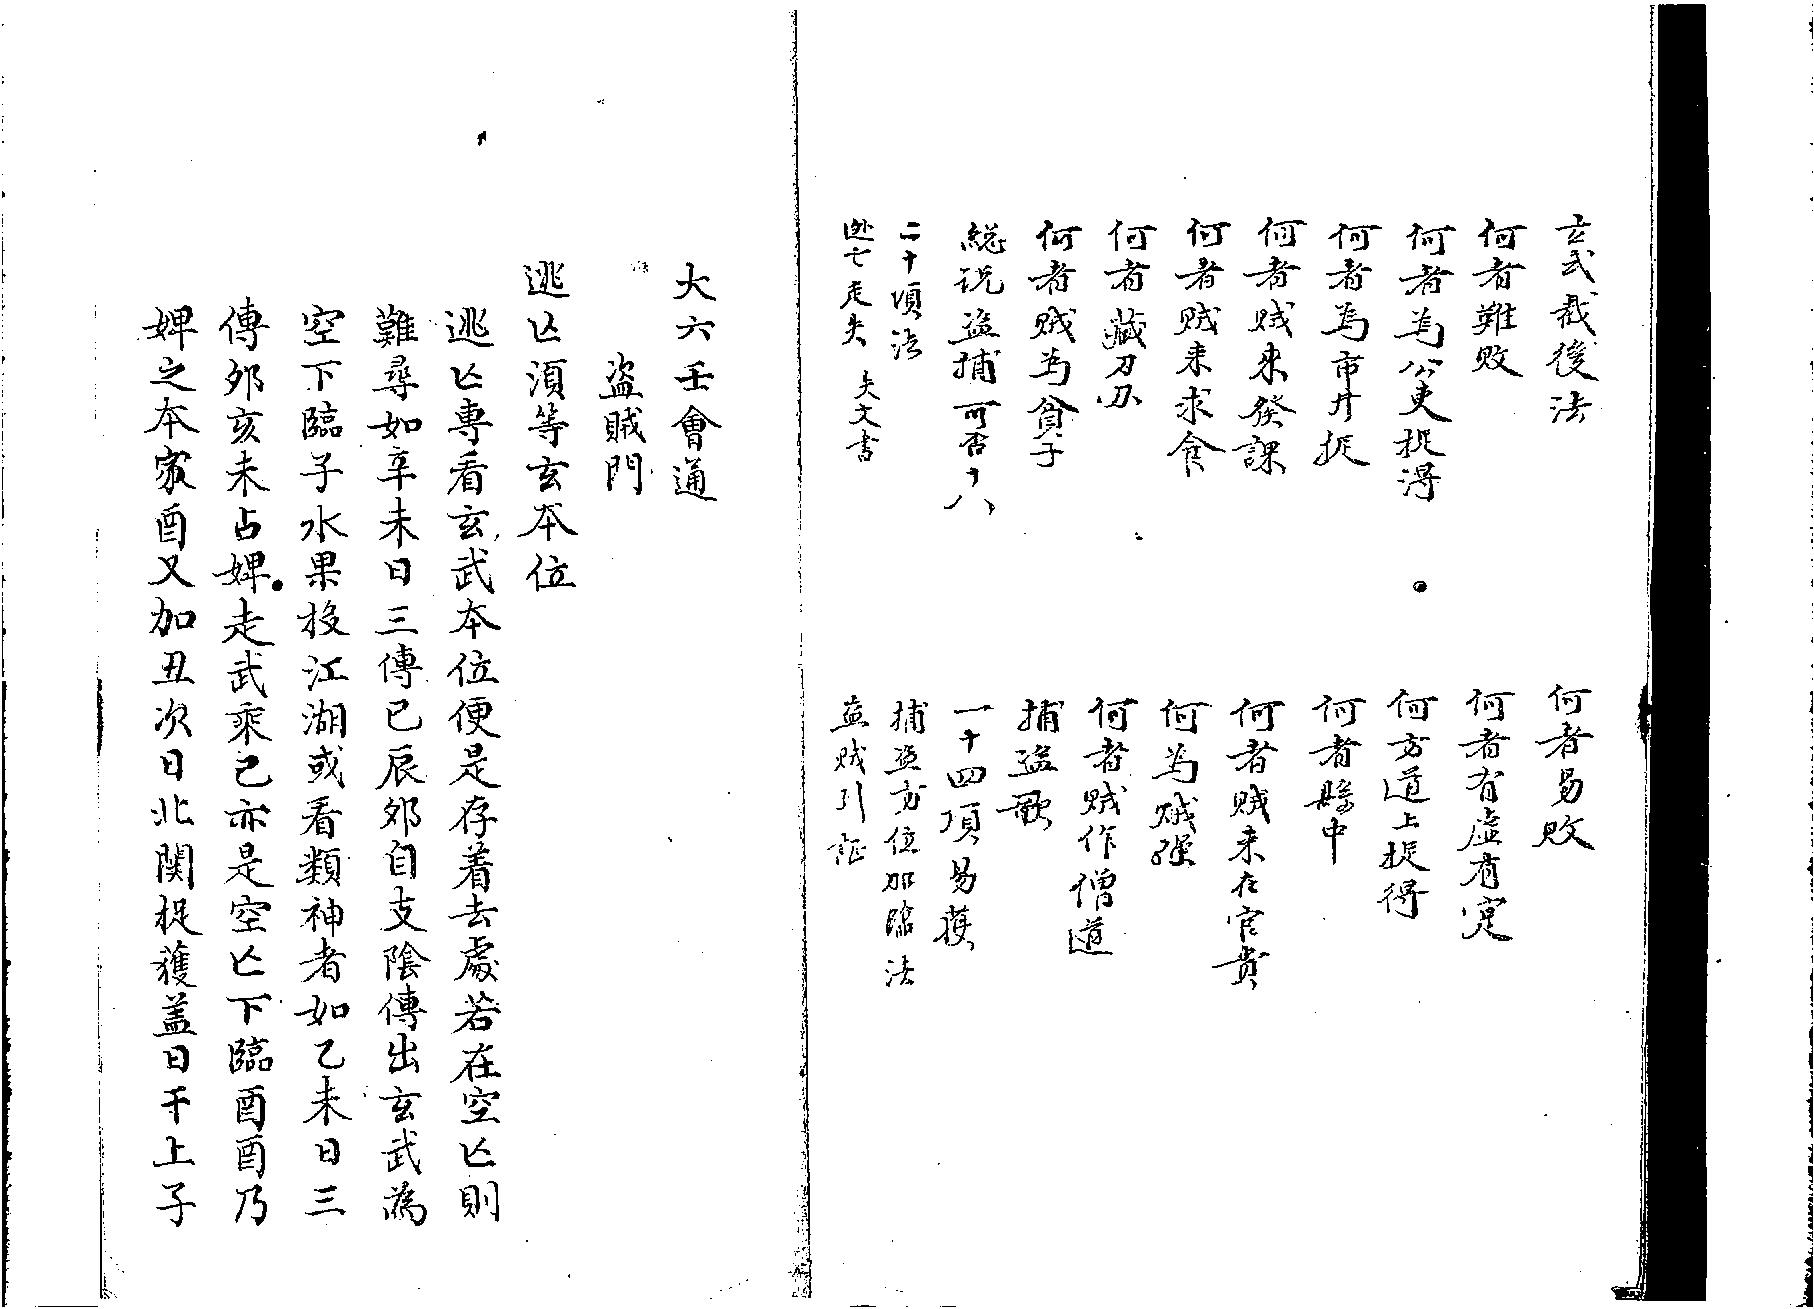 玄武裁後法
何者易敗
何者難敗
何者有虛有寔
何者為公吏捉得
何方道上捉得
何者為市井捉
何者縣中
何者賊来發課
何者賊来在官貴
何者賊来求食
何為賊強
何者藏刀刃
何者賊作僧道
何者賊為貧子
捕盜歌
総説盜捕可否十八
一十四項易獲
二十項法
捕盜方位加臨法
逃亡走失 失文書
盜賊引証
大六壬會通
盜賊門
逃亾湏等玄本位
逃亾專看玄武本位便是存着去處若在空亾則
難尋如辛未日三傳巳辰夘自支陰傳出玄武為
空下臨子水果投江湖或看類神者如乙未日三
傳夘亥未占婢走武乘巳亦是空亾下臨酉酉乃
婢之本家酉又加丑次日北関捉獲盖日干上子